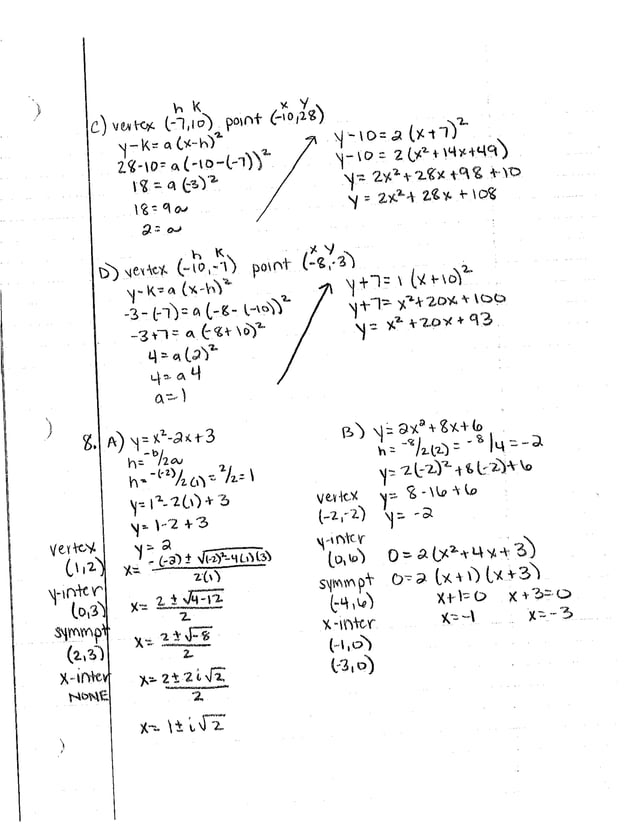 h K
x y
C) vertex (-7,10) point (-10,28)
y-K=a(x-h)²
28-10=a(-10-(-7))²
18=a(-3)²
18=9a
2=a
y-10=2(x+7)²
y-10=2(x²+14x+49)
y=2x²+28x+98+10
y=2x²+28x+108
h K
x y
D) vertex (-10,-7) point (-8,-3)
y-K=a(x-h)²
-3-(-7)=a(-8-(-10))²
-3+7=a(-8+10)²
4=a(2)²
4=a4
a=1
y+7=1(x+10)²
y+7=x²+20x+100
y=x²+20x+93
8. A) y=x²-2x+3
h=-b/2a
h=-(-2)/2(1)=2/2=1
y=1²-2(1)+3
y=1-2+3
y=2
x=-(-2)±√(-2)²-4(1)(3)/2(1)
x=2±√4-12/2
x=2±√-8/2
x=2±2i√2/2
x=1±i√2
vertex
(1,2)
y-inter
(0,3)
symmpt
(2,3)
x-inter
NONE
B) y=2x²+8x+6
h=-8/2(2)=-8/4=-2
y=2(-2)²+8(-2)+6
y=8-16+6
y=-2
vertex
(-2,-2)
y-inter
(0,6)
symmpt
(-4,6)
x-inter
(-1,0)
(-3,0)
0=2(x²+4x+3)
0=2(x+1)(x+3)
x+1=0 x+3=0
x=-1 x=-3